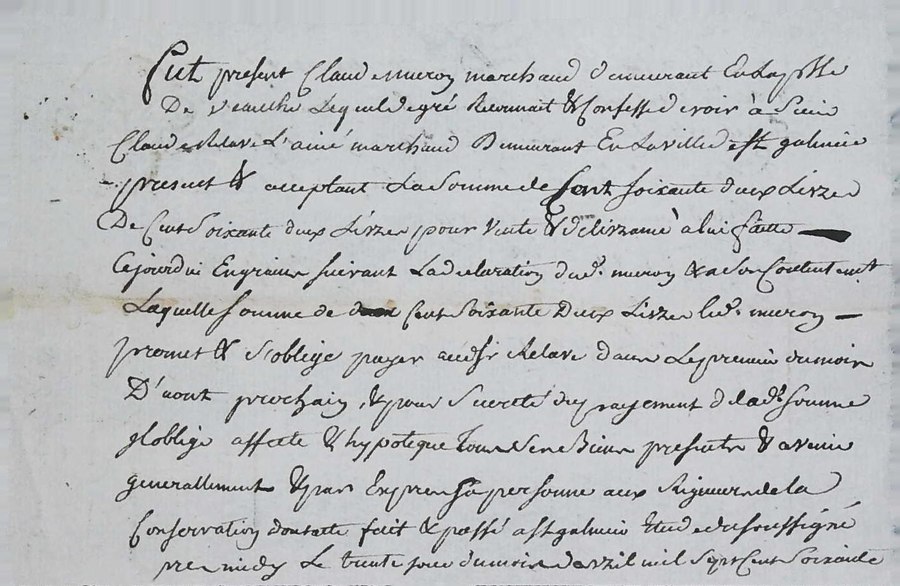 Fut present Claude muron marchand demeurant En la ville
De veauche Lequel de gré Reconnait & Confesse devoir à Sieur
Claude Relave L'ainé marchand Demeurant En La ville de st galmier
present & acceptant La Somme de Cent soixante deux Livres
De Cent Soixante deux Livres pour vente & delivrance à lui faitte
Cejourdui En grains suivant La declaration dud. muron & a son Contentemt
Laquelle Somme de Cent Soixante Deux Livres led. muron
promet & s'oblige payer aud sr Relave dans Le premier du mois
D'aout prochain, & pour Sureté du payement de lad. somme
il oblige affecte & hypoteque tous Ses Biens presents & avenir
generallement & par Exprès Sa personne aux Rigueurs de la
Conservation dont acte fait & passé a st galmier Etude du soussigné
ce midy Le trente jour du mois d'avril mil Sept Cent Soixante